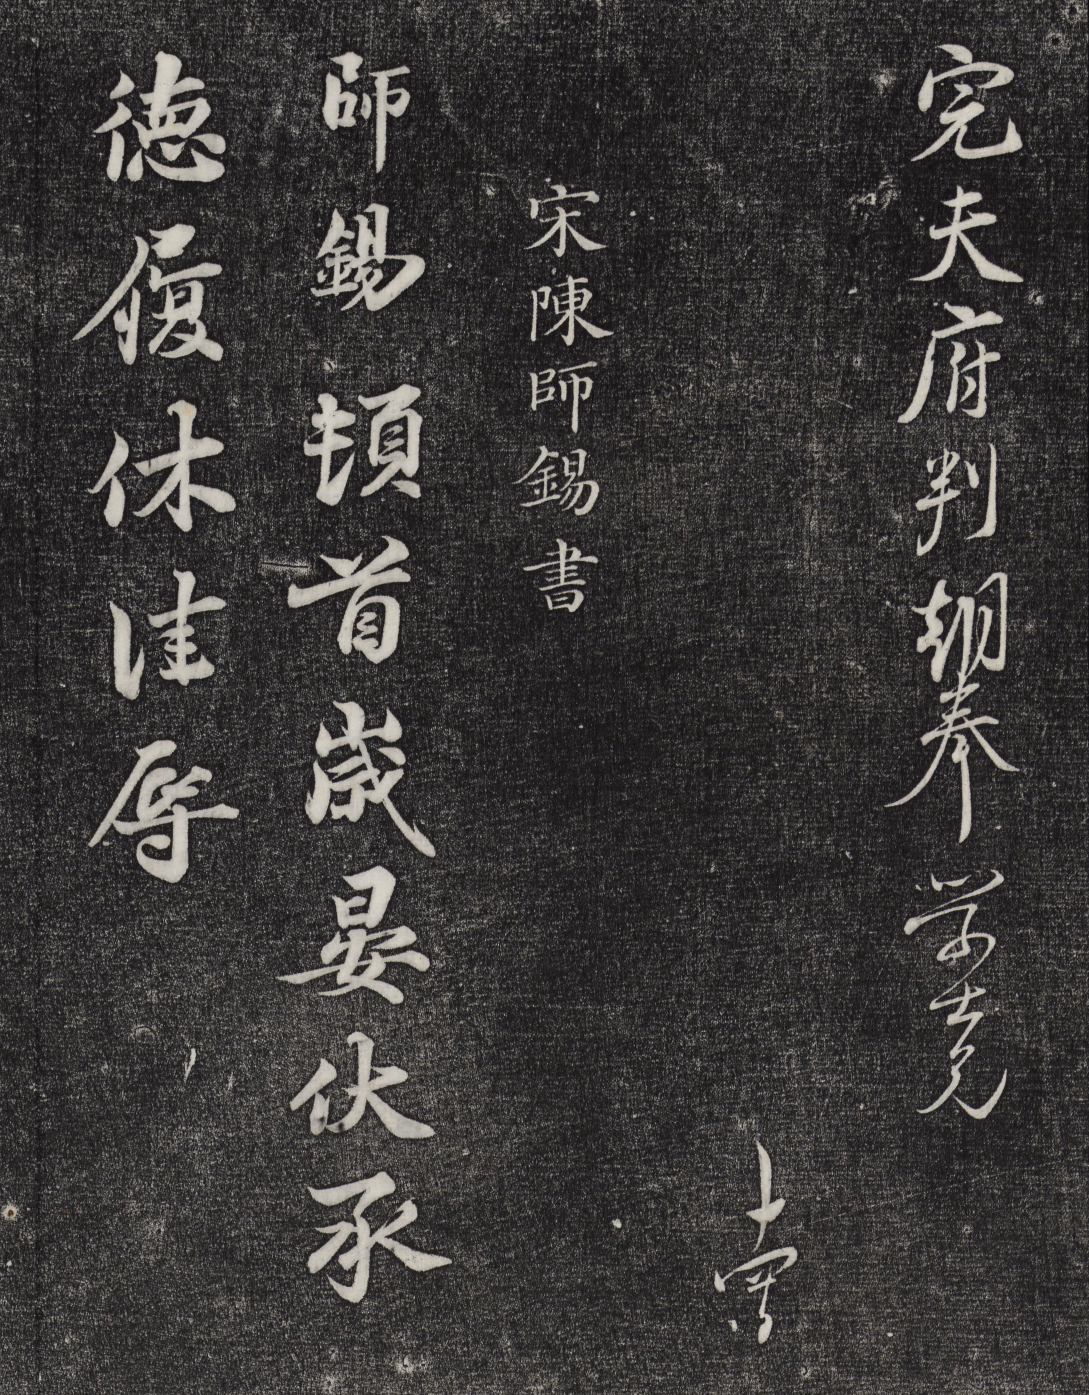 完夫府判朝奉学士兄
宋陳師錫書
師錫頓首歲晏伏承
德履休佳辱